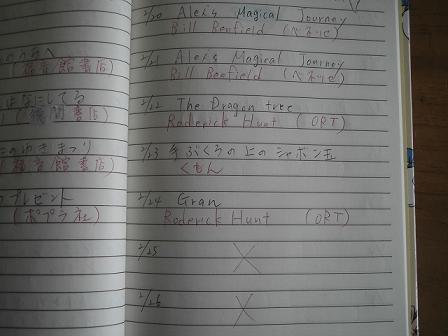 のみあへ
(福音館書店)
にしてる
(福音館書店)
のゆきまつり
(福音館書店)
プレゼント
(ポプラ社)
2/20 Alex's Magical Journey
Bill Benfield (ベネッセ)
2/21 Alex's Magical Journey
Bill Benfield (ベネッセ)
2/22 The Dragon tree
Roderick Hunt (ORT)
2/23 手ぶくろの上のシャボン玉
くもん
2/24 Gran
Roderick Hunt (ORT)
2/25 ×
2/26 ×